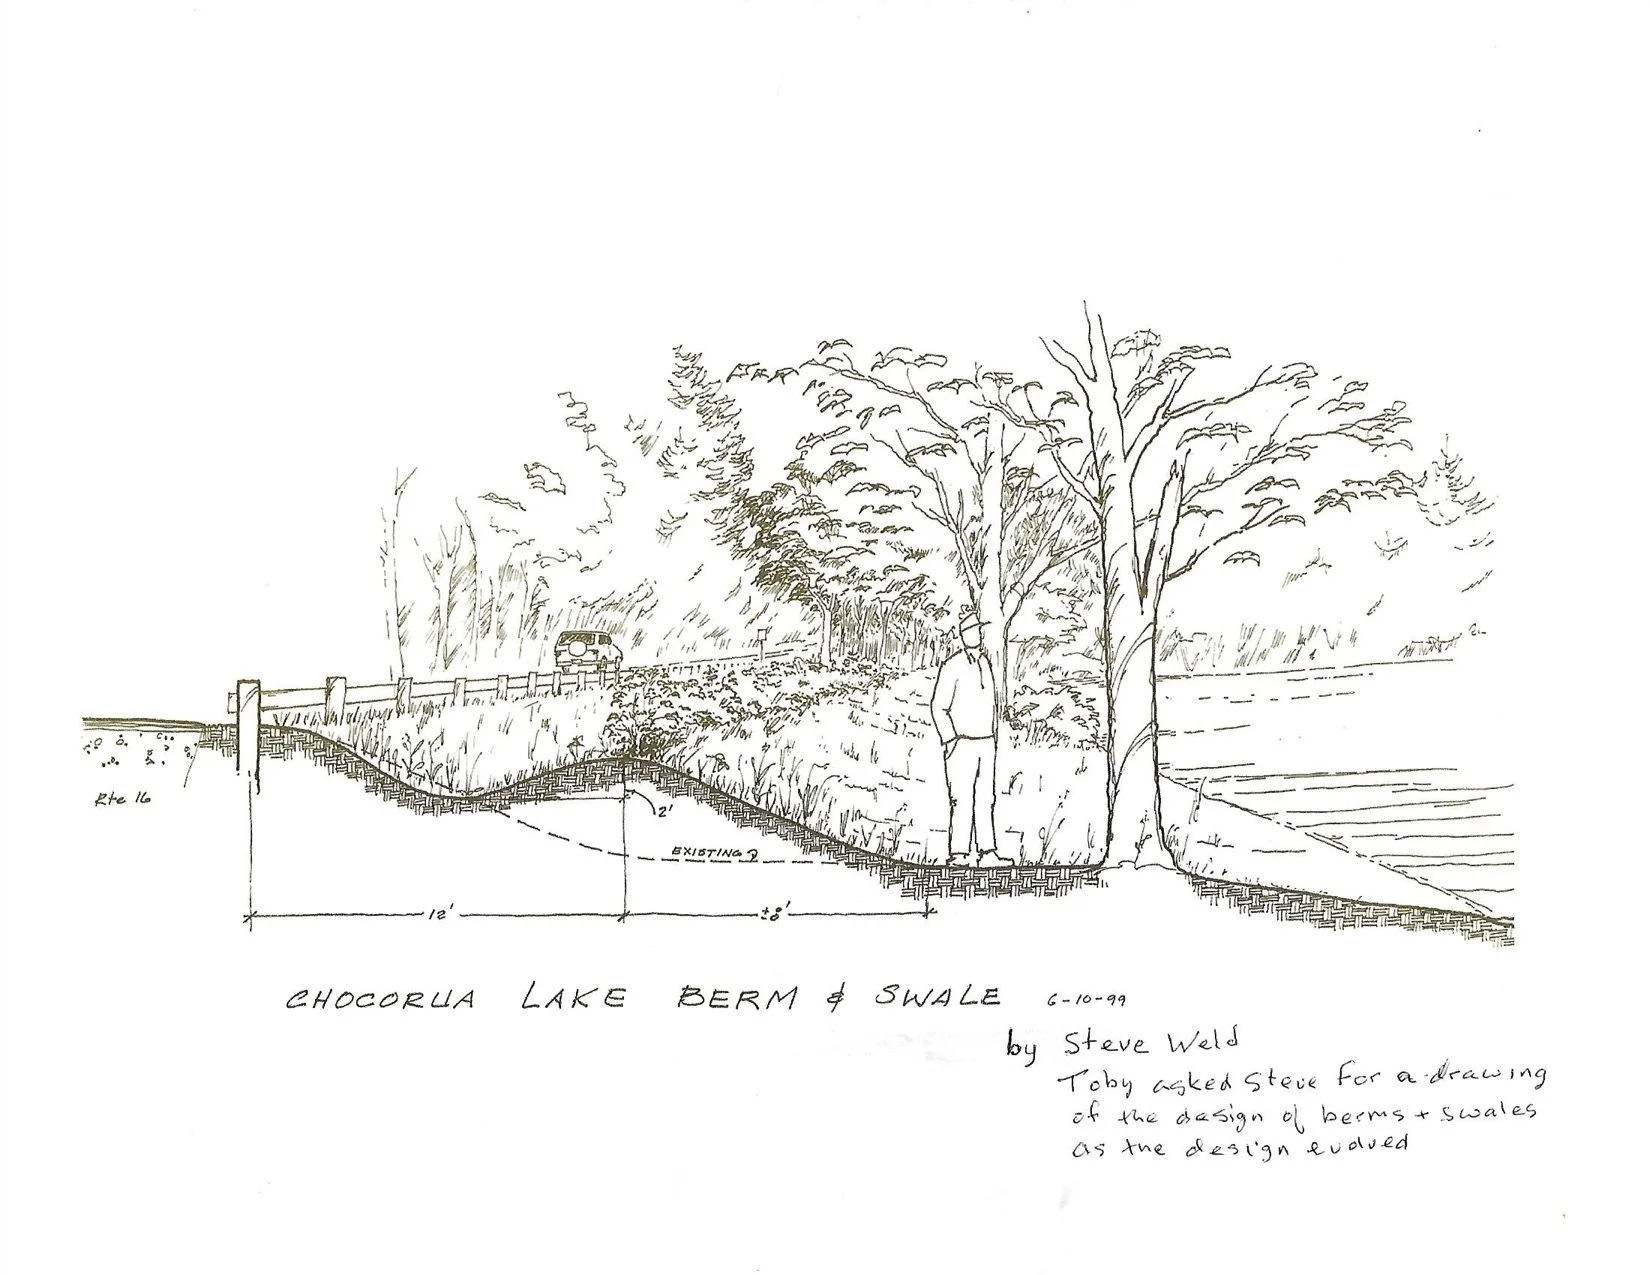 Rte 16
2'
EXISTING
12'
±8'
CHOCORUA LAKE BERM & SWALE 6-10-99
by Steve Weld
Toby asked Steve for a drawing
of the design of berms + swales
as the design evolved